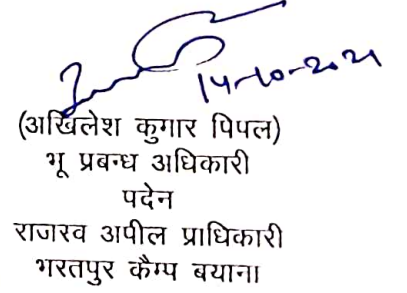 14-10-2021
(अखिलेश कुमार पिपल)
भू प्रबन्ध अधिकारी
पदेन
राजस्व अपील प्राधिकारी
भरतपुर कैम्प बयाना